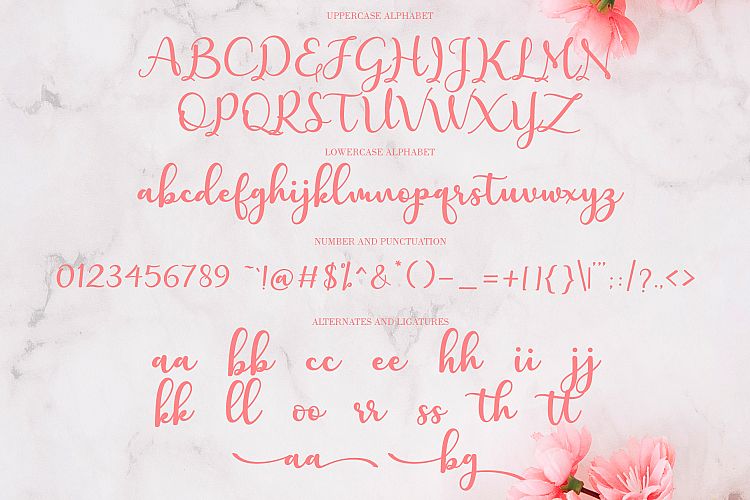 UPPERCASE ALPHABET
ABCDEFGHIJKLMN
OPQRSTUVWXYZ
LOWERCASE ALPHABET
abcdefghijklmnopqrstuvwxyz
NUMBER AND PUNCTUATION
0123456789 ~`!@#$%^&*()-_=+[]{}\|'";:/?.,<>
ALTERNATES AND LIGATURES
aa bb cc ee hh ii jj
kk ll oo rr ss th tt
aa bg